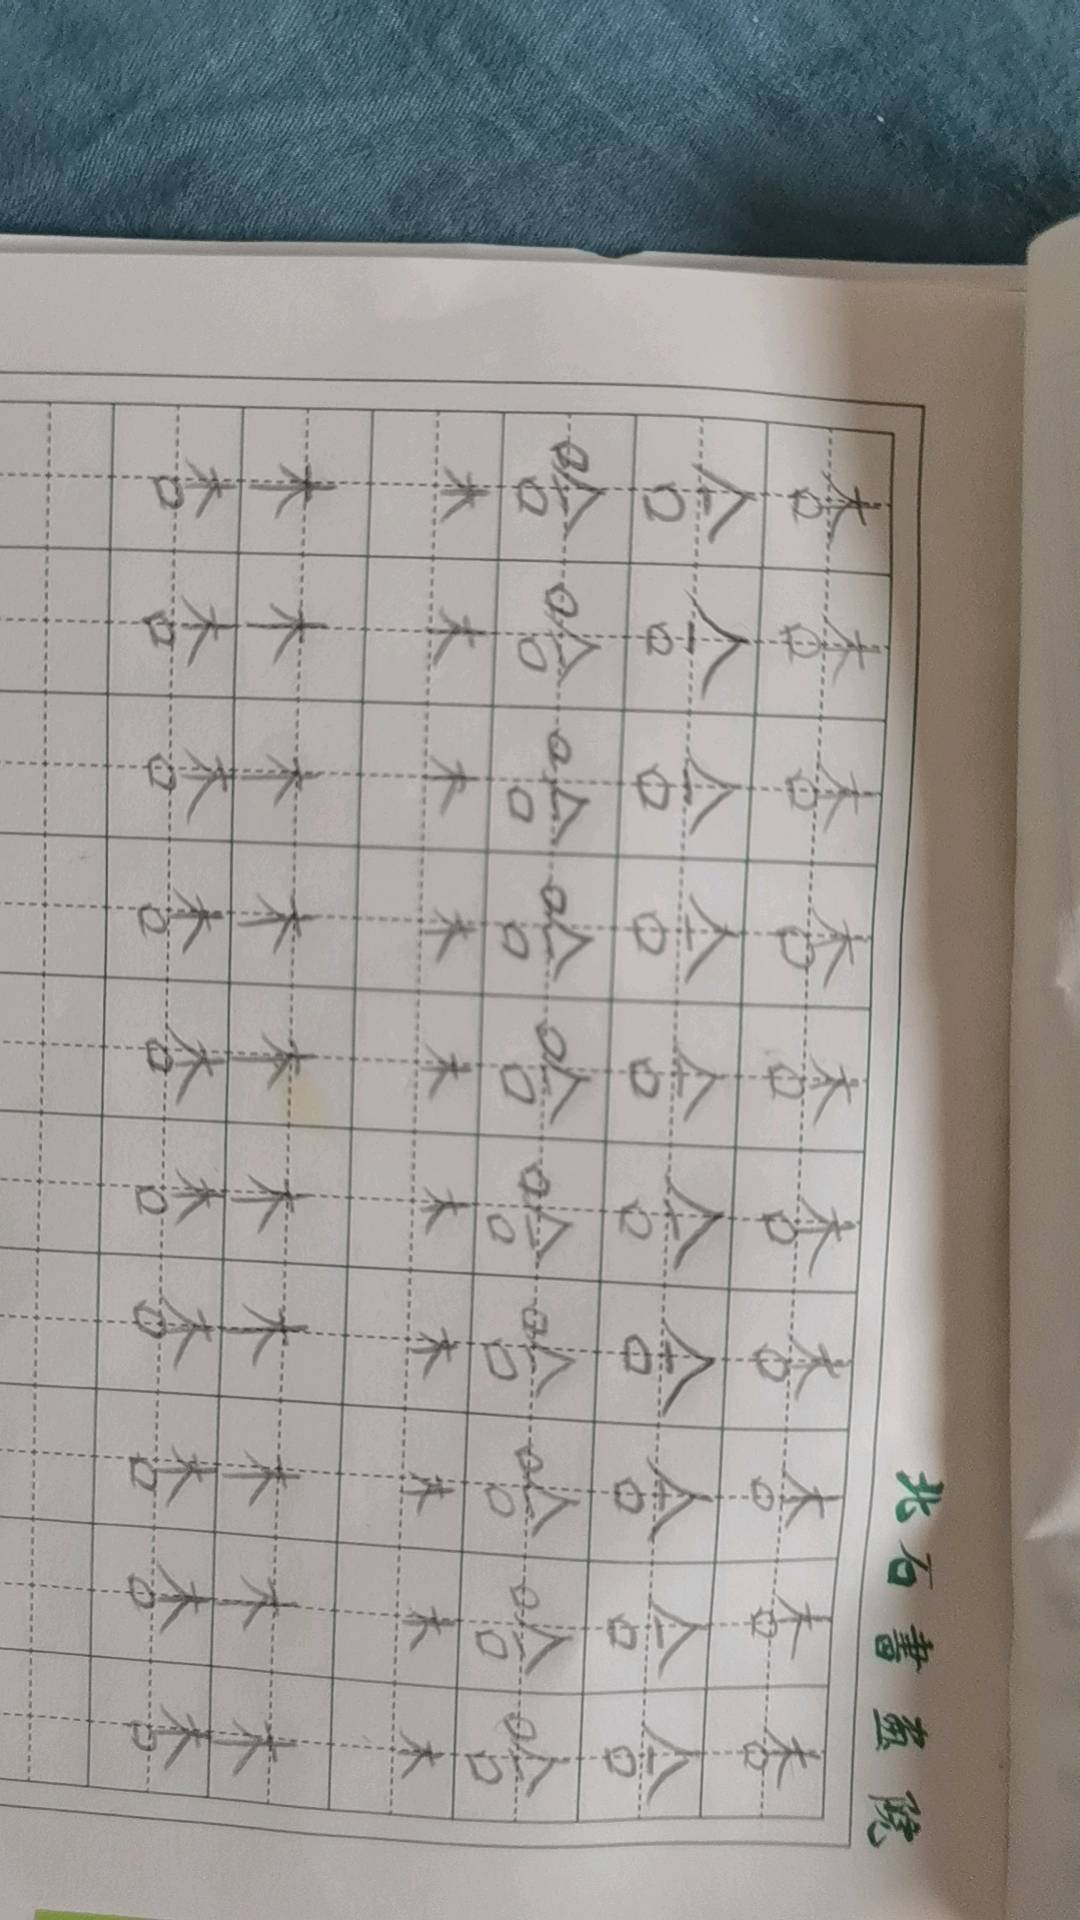 兆石書畫院
杏杏杏杏杏杏杏杏杏杏
合合合合合合合合合合
哈哈哈哈哈哈哈哈哈哈
木木木木木木木木木木
木木木木木木木木木木
杏杏杏杏杏杏杏杏杏杏